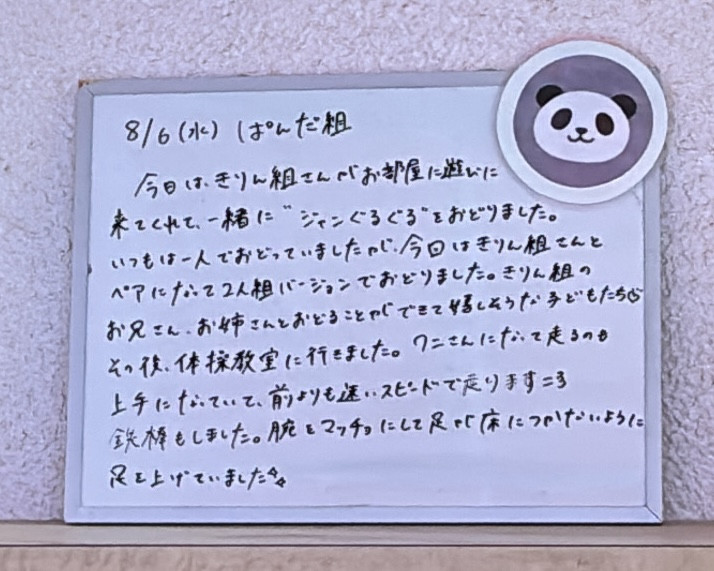 8/6(水) ぱんだ組
今日は、きりん組さんがお部屋に遊びに
来てくれて、一緒に"ジャンぐるぐる"をおどりました。
いつもは一人でおどっていましたが、今日はきりん組さんと
ペアになって2人組バージョンでおどりました。きりん組の
お兄さん、お姉さんとおどることができて嬉しそうな子どもたち
その後、体操教室に行きました。ワニさんになって走るのも
上手になっていて、前よりも速いスピードで走ります
鉄棒もしました。腕をマッチョにして足が床につかないように
足を上げていました